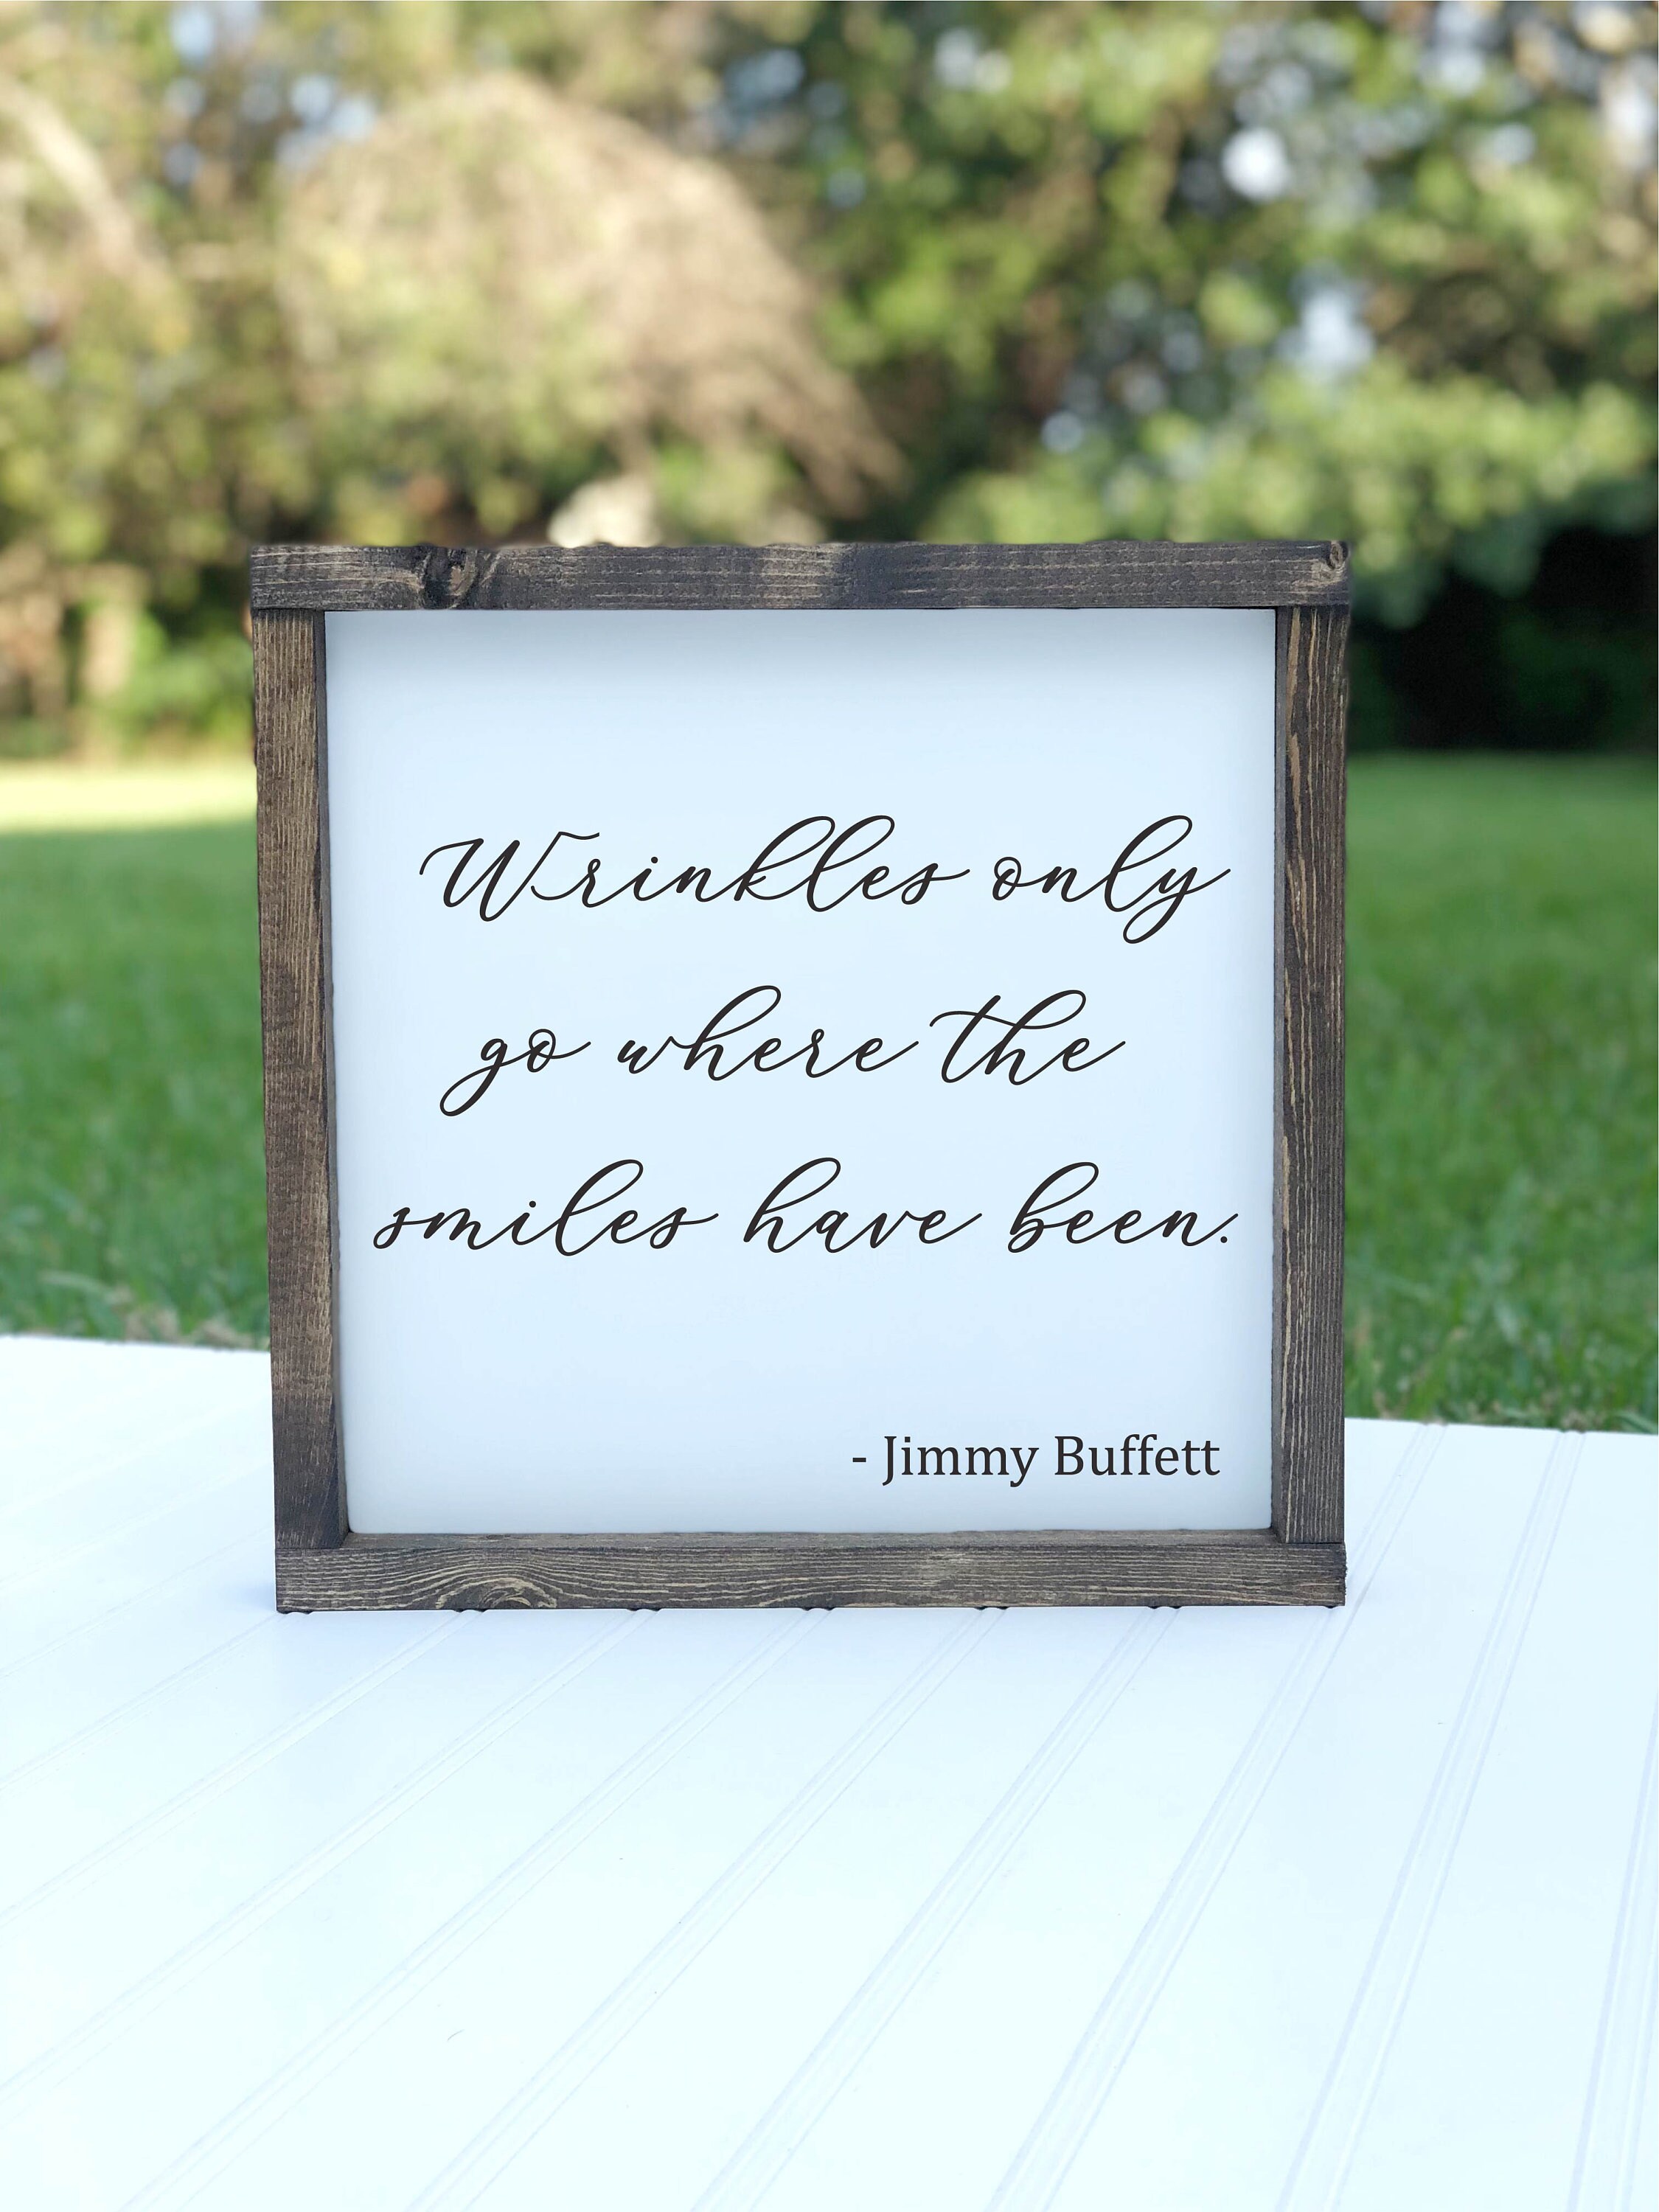 Wrinkles only
go where the
smiles have been.
- Jimmy Buffett